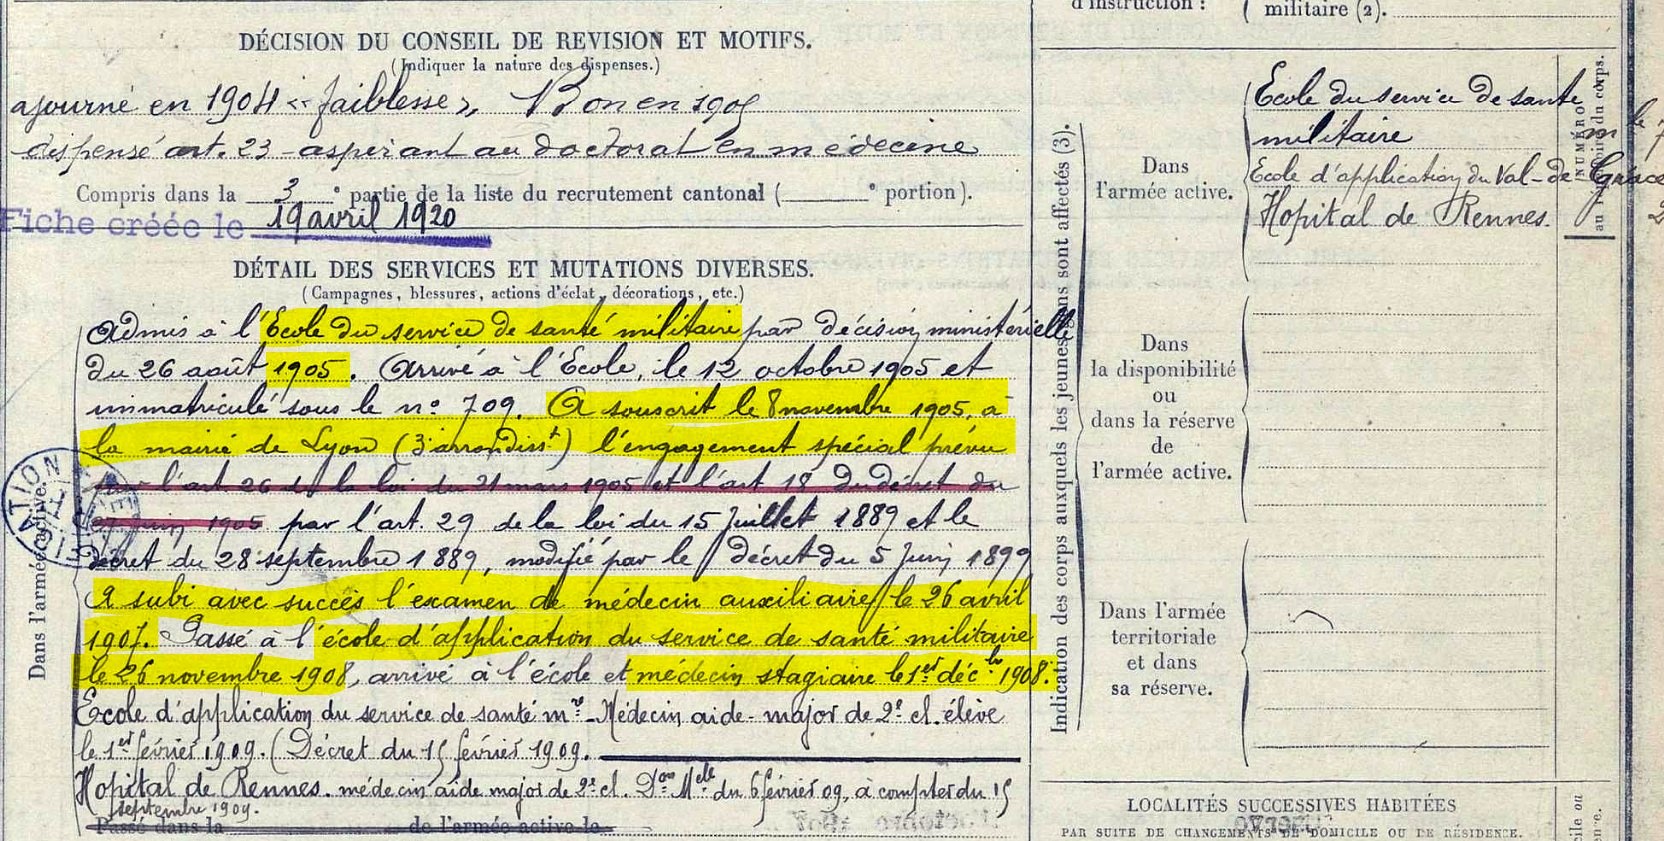 DÉCISION DU CONSEIL DE REVISION ET MOTIFS.
(Indiquer la nature des dispenses.)
ajourné en 1904 « faiblesse », Bon en 1905
dispensé art. 23 - aspirant au doctorat en médecine
Compris dans la 3e partie de la liste du recrutement cantonal ( e portion).
Fiche créée le 19 avril 1920
DÉTAIL DES SERVICES ET MUTATIONS DIVERSES.
(Campagnes, blessures, actions d'éclat, décorations, etc.)
Dans l'armée active.
Admis à l'Ecole du service de santé militaire par décision ministérielle
du 26 août 1905. Arrivé à l'Ecole, le 12 octobre 1905 et
immatriculé sous le n° 709. A souscrit le 8 novembre 1905, à
la mairie de Lyon (3e arrondisst) l'engagement spécial prévu
par l'art 26 de la loi du 21 mars 1905 et l'art 18 du décret du
juin 1905 par l'art. 29 de la loi du 15 Juillet 1889 et le
décret du 28 septembre 1889, modifié par le décret du 5 Juin 1899
A subi avec succès l'examen de médecin auxiliaire le 26 avril
1907. Passé à l'école d'application du service de santé militaire
le 26 novembre 1908, arrivé à l'école et médecin stagiaire le 1er décbre 1908.
Ecole d'application du service de santé mre - Médecin aide-major de 2e cl. élève
le 1er février 1909. (Décret du 15 février 1909.
Hopital de Rennes. médecin aide major de 2e cl. Don Mlle du 6 février 09, à compter du 15
septembre 1909.
Passé dans la de l'armée active le
d'instruction :
militaire (2).
Indication des corps auxquels les jeunes gens sont affectés (3).
Dans
l'armée active.
Ecole du service de santé
militaire
Ecole d'application du Val-de Grâce
Hopital de Rennes.
NUMÉRO
au du corps.
Dans
la disponibilité
ou
dans la réserve
de
l'armée active.
Dans l'armée
territoriale
et dans
sa réserve.
LOCALITÉS SUCCESSIVES HABITÉES
PAR SUITE DE CHANGEMENTS DE DOMICILE OU DE RÉSIDENCE.